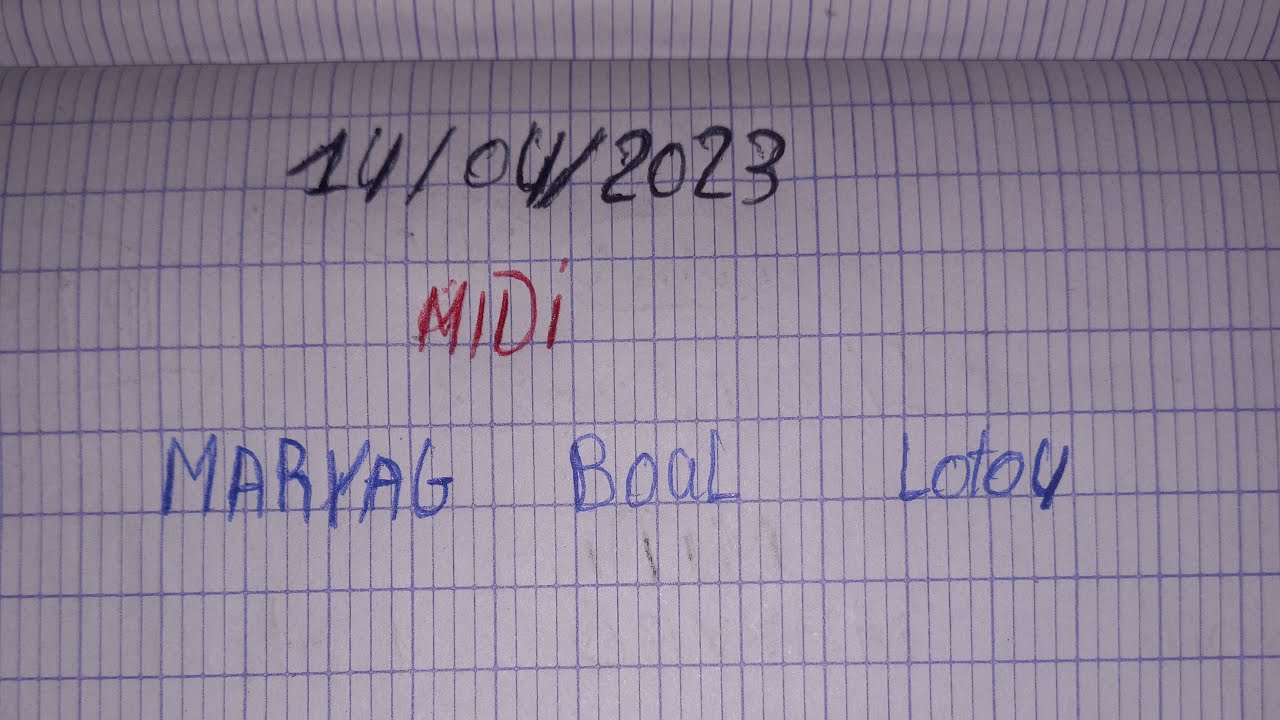 14/04/2023
MIDi
MARYAG BOAL Loto4